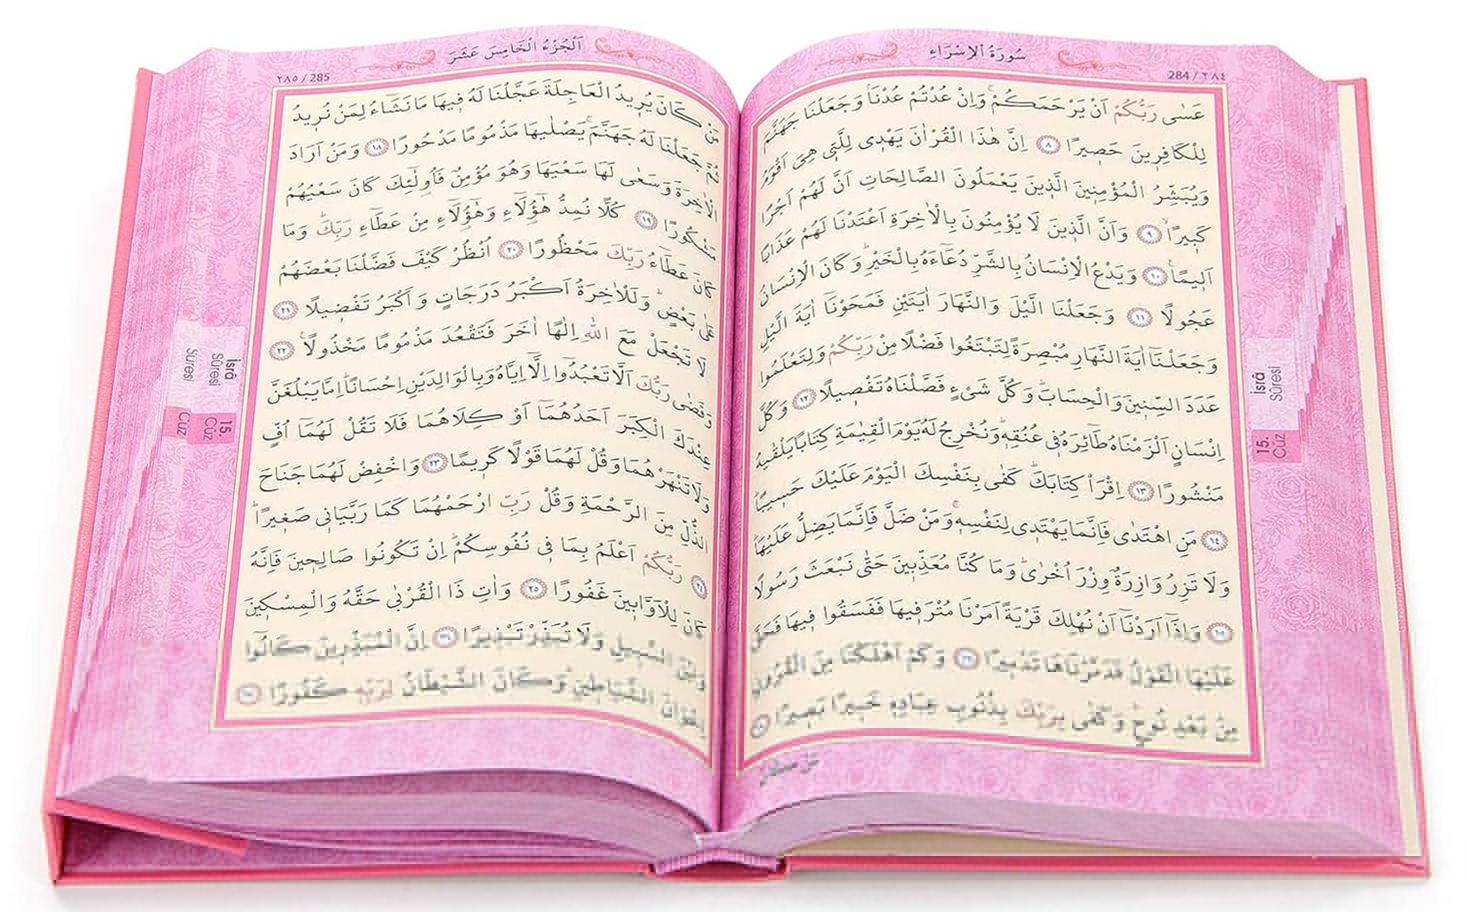 سُورَةُ الْاِسْرَاءِ
284 / ٢٨٤
عَسٰى رَبُّكُمْ اَنْ يَرْحَمَكُمْۚ وَاِنْ عُدْتُمْ عُدْنَاۢ وَجَعَلْنَا جَهَنَّمَ
لِلْكَافِرٖينَ حَصٖيرًا ﴿٨﴾ اِنَّ هٰذَا الْقُرْاٰنَ يَهْدٖى لِلَّتٖى هِىَ اَقْوَمُ
وَيُبَشِّرُ الْمُؤْمِنٖينَ الَّذٖينَ يَعْمَلُونَ الصَّالِحَاتِ اَنَّ لَهُمْ اَجْرًا
كَبٖيرًاۙ ﴿٩﴾ وَاَنَّ الَّذٖينَ لَا يُؤْمِنُونَ بِالْاٰخِرَةِ اَعْتَدْنَا لَهُمْ عَذَابًا
اَلٖيمًاۚ ﴿١٠﴾ وَيَدْعُ الْاِنْسَانُ بِالشَّرِّ دُعَاءَهُ بِالْخَيْرِؕ وَكَانَ الْاِنْسَانُ
عَجُولًا ﴿١١﴾ وَجَعَلْنَا الَّيْلَ وَالنَّهَارَ اٰيَتَيْنِ فَمَحَوْنَا اٰيَةَ الَّيْلِ
وَجَعَلْنَا اٰيَةَ النَّهَارِ مُبْصِرَةً لِتَبْتَغُوا فَضْلًا مِنْ رَبِّكُمْ وَلِتَعْلَمُوا
عَدَدَ السِّنٖينَ وَالْحِسَابَؕ وَكُلَّ شَىْءٍ فَصَّلْنَاهُ تَفْصٖيلًا ﴿١٢﴾ وَكُلَّ
اِنْسَانٍ اَلْزَمْنَاهُ طَائِرَهُ فٖى عُنُقِهٖؕ وَنُخْرِجُ لَهُ يَوْمَ الْقِيٰمَةِ كِتَابًا يَلْقٰيهُ
مَنْشُورًا ﴿١٣﴾ اِقْرَاْ كِتَابَكَؕ كَفٰى بِنَفْسِكَ الْيَوْمَ عَلَيْكَ حَسٖيبًاؕ
﴿١٤﴾ مَنِ اهْتَدٰى فَاِنَّمَا يَهْتَدٖى لِنَفْسِهٖۚ وَمَنْ ضَلَّ فَاِنَّمَا يَضِلُّ عَلَيْهَاؕ
وَلَا تَزِرُ وَازِرَةٌ وِزْرَ اُخْرٰىؕ وَمَا كُنَّا مُعَذِّبٖينَ حَتّٰى نَبْعَثَ رَسُولًا
﴿١٥﴾ وَاِذَا اَرَدْنَا اَنْ نُهْلِكَ قَرْيَةً اَمَرْنَا مُتْرَفٖيهَا فَفَسَقُوا فٖيهَا فَحَقَّ
عَلَيْهَا الْقَوْلُ فَدَمَّرْنَاهَا تَدْمٖيرًا ﴿١٦﴾ وَكَمْ اَهْلَكْنَا مِنَ الْقُرُونِ
مِنْ بَعْدِ نُوحٍؕ وَكَفٰى بِرَبِّكَ بِذُنُوبِ عِبَادِهٖ خَبٖيرًا بَصٖيرًا ﴿١٧﴾
İsrâ
Sûresi
15.
Cüz
اَلْجُزْءُ الْخَامِسَ عَشَرَ
٢٨٥ / 285
مَنْ كَانَ يُرٖيدُ الْعَاجِلَةَ عَجَّلْنَا لَهُ فٖيهَا مَا نَشَاءُ لِمَنْ نُرٖيدُ
ثُمَّ جَعَلْنَا لَهُ جَهَنَّمَۚ يَصْلٰيهَا مَذْمُومًا مَدْحُورًا ﴿١٨﴾ وَمَنْ اَرَادَ
الْاٰخِرَةَ وَسَعٰى لَهَا سَعْيَهَا وَهُوَ مُؤْمِنٌ فَاُولٰئِكَ كَانَ سَعْيُهُمْ
مَشْكُورًا ﴿١٩﴾ كُلًّا نُمِدُّ هٰؤُلَاءِ وَهٰؤُلَاءِ مِنْ عَطَاءِ رَبِّكَؕ وَمَا
كَانَ عَطَاءُ رَبِّكَ مَحْظُورًا ﴿٢٠﴾ اُنْظُرْ كَيْفَ فَضَّلْنَا بَعْضَهُمْ
عَلٰى بَعْضٍؕ وَلَلْاٰخِرَةُ اَكْبَرُ دَرَجَاتٍ وَاَكْبَرُ تَفْضٖيلًا ﴿٢١﴾
لَا تَجْعَلْ مَعَ اللّٰهِ اِلٰهًا اٰخَرَ فَتَقْعُدَ مَذْمُومًا مَخْذُولًاۚ ﴿٢٢﴾
وَقَضٰى رَبُّكَ اَلَّا تَعْبُدُوا اِلَّا اِيَّاهُ وَبِالْوَالِدَيْنِ اِحْسَانًاؕ اِمَّا يَبْلُغَنَّ
عِنْدَكَ الْكِبَرَ اَحَدُهُمَا اَوْ كِلَاهُمَا فَلَا تَقُلْ لَهُمَا اُفٍّ
وَلَا تَنْهَرْهُمَا وَقُلْ لَهُمَا قَوْلًا كَرٖيمًا ﴿٢٣﴾ وَاخْفِضْ لَهُمَا جَنَاحَ
الذُّلِّ مِنَ الرَّحْمَةِ وَقُلْ رَبِّ ارْحَمْهُمَا كَمَا رَبَّيَانٖى صَغٖيرًاؕ
﴿٢٤﴾ رَبُّكُمْ اَعْلَمُ بِمَا فٖى نُفُوسِكُمْؕ اِنْ تَكُونُوا صَالِحٖينَ فَاِنَّهُ
كَانَ لِلْاَوَّابٖينَ غَفُورًا ﴿٢٥﴾ وَاٰتِ ذَا الْقُرْبٰى حَقَّهُ وَالْمِسْكٖينَ
وَابْنَ السَّبٖيلِ وَلَا تُبَذِّرْ تَبْذٖيرًا ﴿٢٦﴾ اِنَّ الْمُبَذِّرٖينَ كَانُوا
اِخْوَانَ الشَّيَاطٖينِؕ وَكَانَ الشَّيْطَانُ لِرَبِّهٖ كَفُورًا ﴿٢٧﴾
İsrâ
Sûresi
15.
Cüz
Sûresi
Cüz